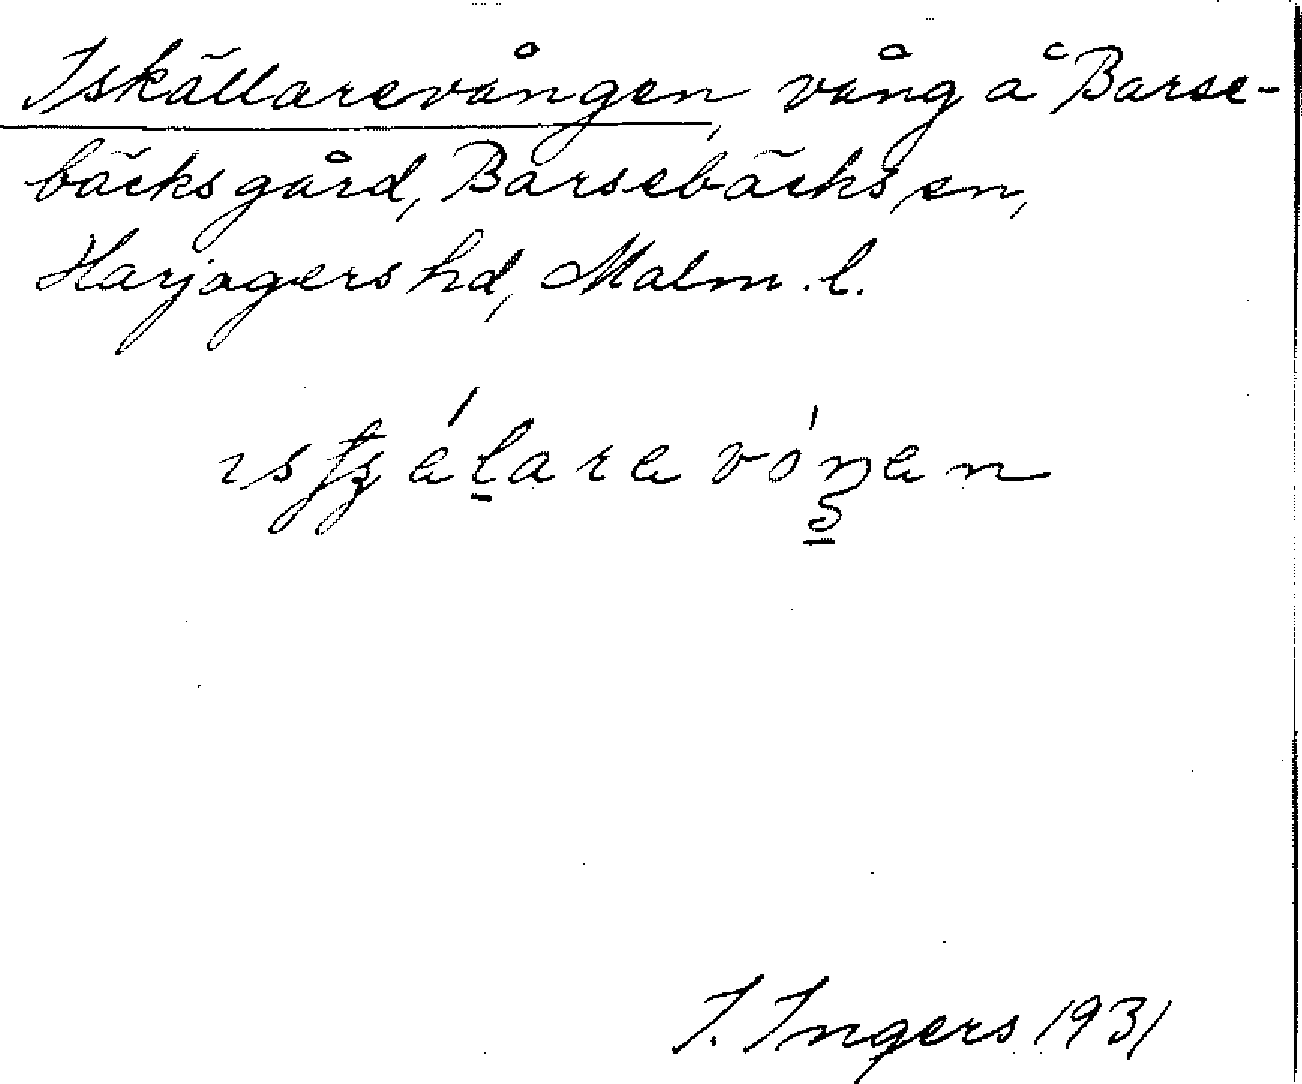 Iskällarevången, vång å Barse-
bäcksgård, Barsebäcks sn,
Harjagers hd, Malm. l.
I. Ingers 1931